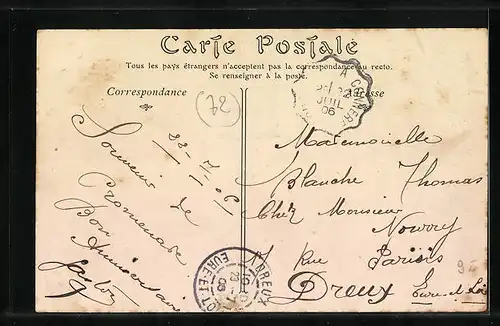 Carte Postale
Tous les pays étrangers n'acceptent pas la correspondance au recto.
Se renseigner à la poste.
Correspondance
Adresse
22-7-06
Souvenir de
Promenade
Bon
Anniversaire
Mademoiselle
Blanche Thomas
Chez Monsieur
Rue Parisis
Dreux Eure-et-Loir
22
JUIL
06
DREUX
EURE-ET-LOIR